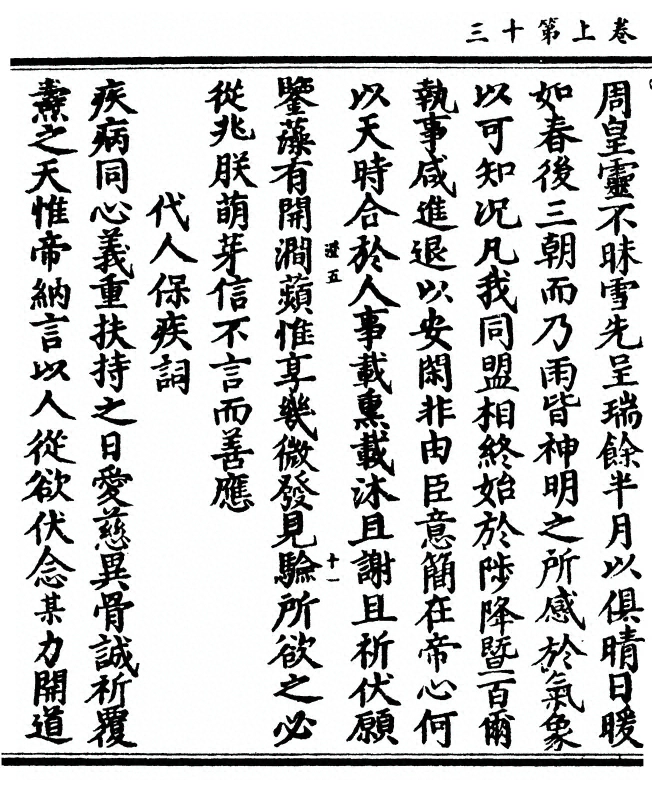 卷上第十三
周皇靈不昧雪先呈瑞餘半月以俱晴日暖
如春後三朝而乃雨皆神明之所感於氣象
以可知况凡我同盟相終始於陟降暨百爾
執事咸進退以安閑非由臣意簡在帝心何
以天時合於人事載熏載沐且謝且祈伏願
五 十一
鑒藻有開澗蘋惟享幾微發見驗所欲之必
從兆朕萌芽信不言而善應
代人保疾詞
疾病同心義重扶持之日愛慈異骨誠祈覆
燾之天惟帝納言以人從欲伏念某力開道